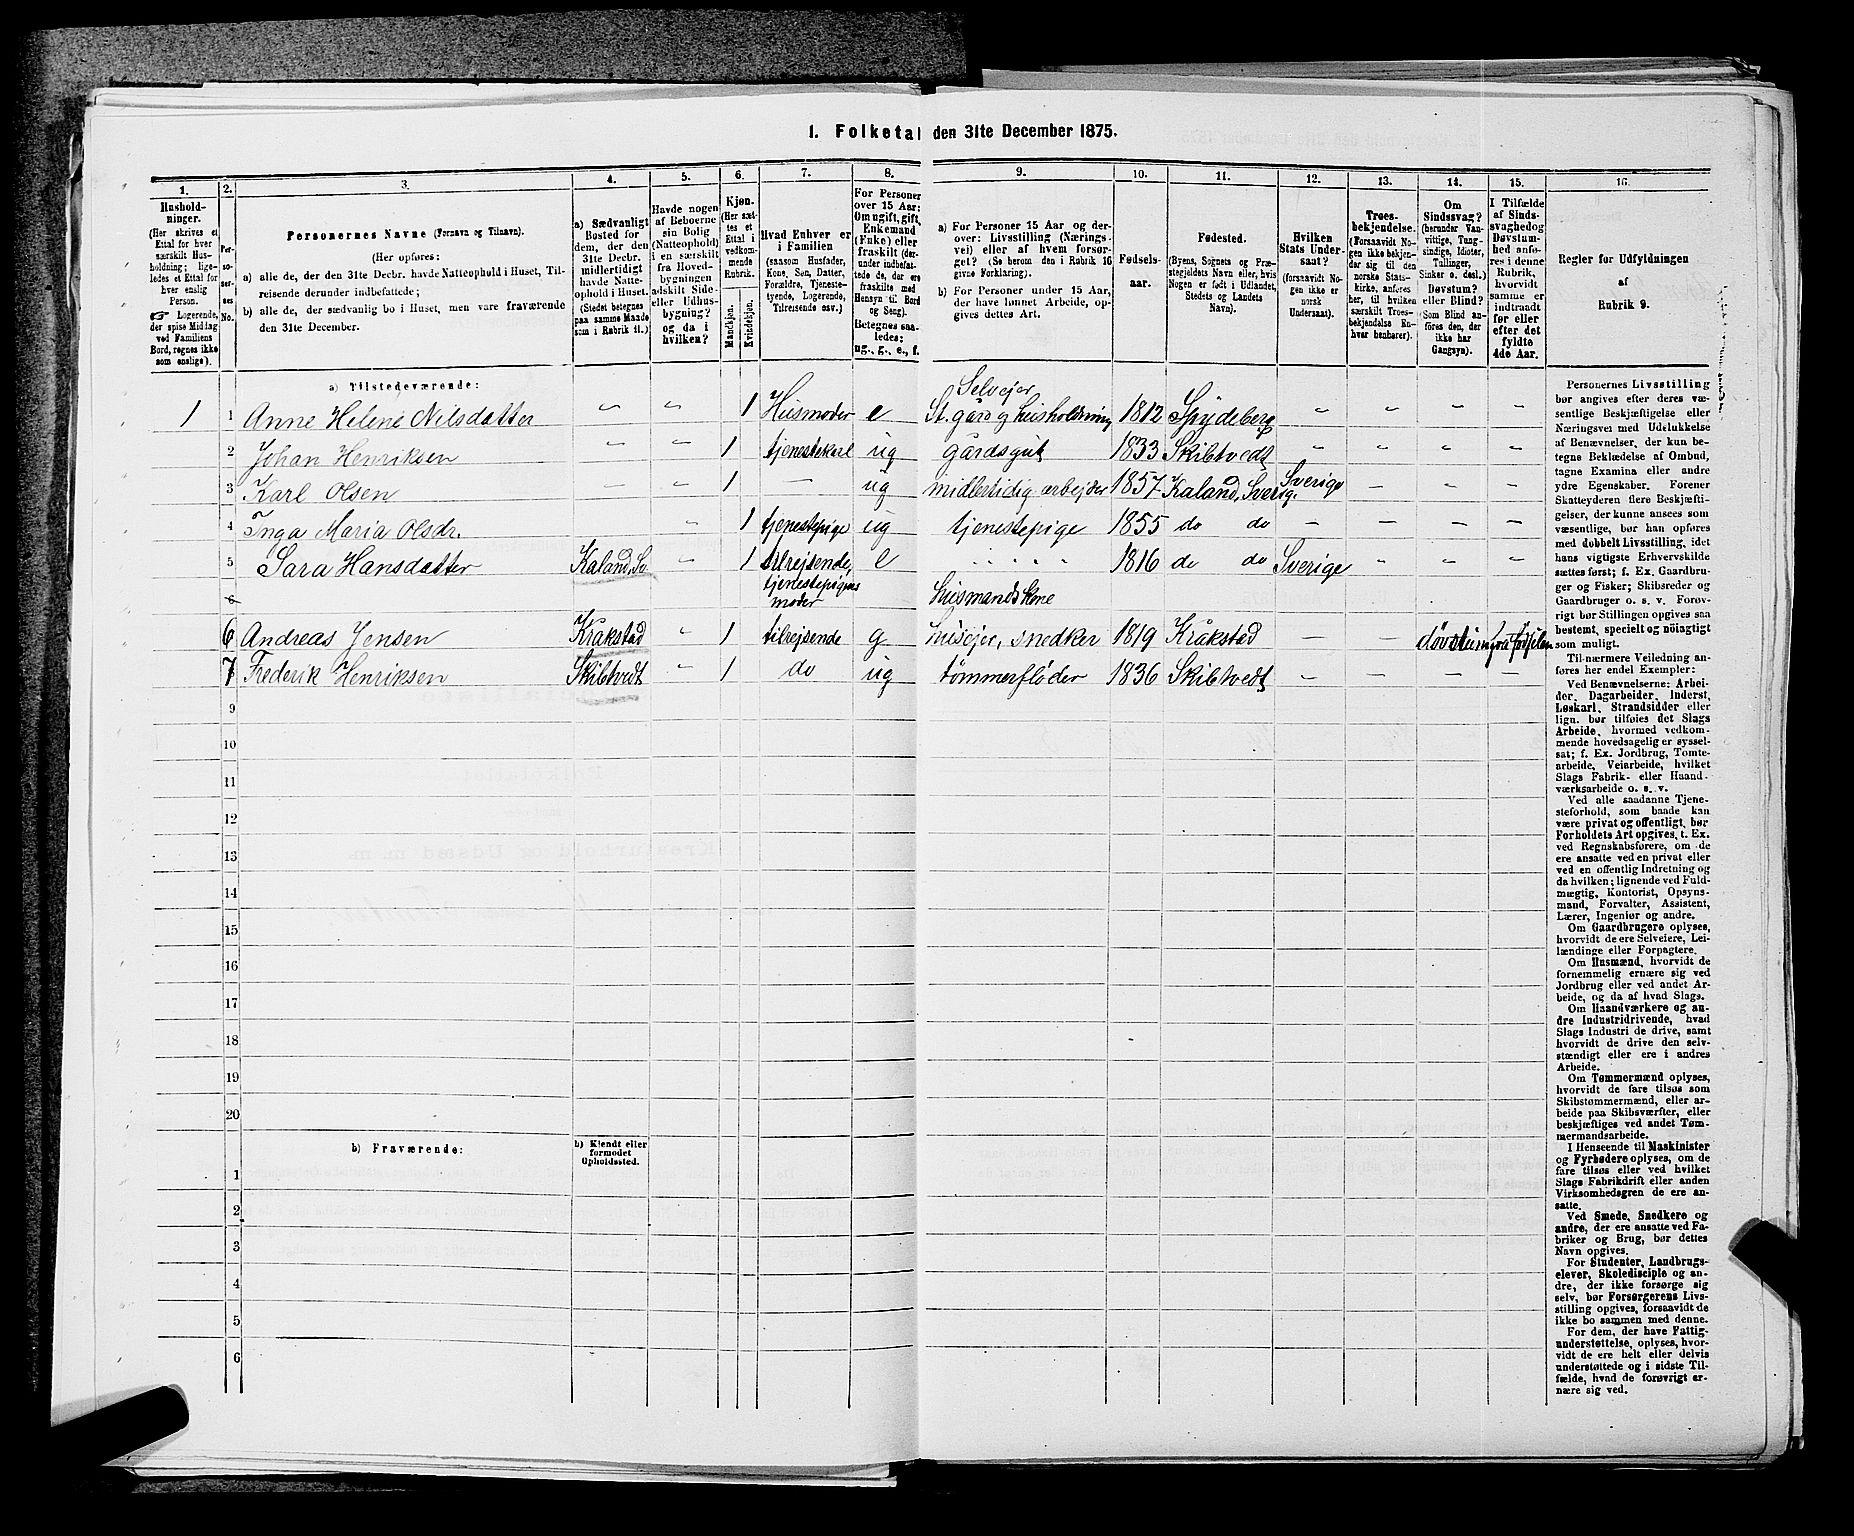 1. Folketal den 31te December 1875.
1.
2.
3.
4.
5.
6.
7.
8.
9.
10.
11.
12.
13.
14.
15.
16.
Hushold-
ninger.
(Her skrives et
Ettal for hver
særskilt Hus-
holdning; lige-
ledes et Ettal for
hver enslig
Person.
☞ Logerende,
der spise Middag
ved Familiens
Bord, regnes ikke
som enslige).
Per-
so-
ner-
nes
No.
Personernes Navne (Fornavn og Tilnavn).
(Her opføres:
a) alle de, der den 31te Decbr. havde Natteophold i Huset, Til-
reisende derunder indbefattede;
b) alle de, der sædvanlig bo i Huset, men vare fraværende
den 31te December.
a) Sædvanligt
Bosted for
dem, der den
31te Decbr.
midlertidigt
havde Natte-
ophold i Huset.
(Stedet betegnes
paa samme Maade
som i Rubrik 11.)
Havde nogen
af Beboerne
sin Bolig
(Natteophold)
i en særskilt
fra Hoved-
bygningen
adskilt Side-
eller Udhus-
bygning?
og da i
hvilken?
Kjøn.
(Her sæt-
tes et
Ettal i
vedkom-
mende
Rubrik.
Mandkjøn.
Kvindekjøn.
Hvad Enhver er
i Familien
(saasom Husfader,
Kone, Søn, Datter,
Forældre, Tjeneste-
tyende, Logerende,
Tilreisende osv.)
For Personer
over 15 Aar:
Om ugift, gift,
Enkemand
(Enke) eller
fraskilt (der-
under indbefat-
tede de, der ere
fraskilte med
Hensyn til Bord
og Seng).
Betegnes saa-
ledes:
ug., g., e., f.
a) For Personer 15 Aar og der-
over: Livsstilling (Nærings-
vei) eller af hvem forsør-
get? (Se herom den i Rubrik 16
givne Forklaring).
b) For Personer under 15 Aar,
der have lønnet Arbeide, op-
gives dettes Art.
Fødsels-
aar.
Fødested.
(Byens, Sognets og Præ-
stegjeldets Navn eller, hvis
Nogen er født i Udlandet,
Stedets og Landets
Navn).
Hvilken
Stats Under-
saat?
(forsaavidt No-
gen ikke er
norsk
Undersaat).
Troes-
bekjendelse.
(Forsaavidt No-
gen ikke bekjen-
der sig til den
norske Stats-
kirke, anføres
her, til hvilken
særskilt Troes-
bekjendelse En-
hver henhører).
Om
Sindssvag?
(herunder Van-
vittige, Tung-
sindige, Idioter,
Tullinger,
Sinker o. desl.)
Døvstum?
eller Blind?
(Som Blind an-
føres den, der
ikke har
Gangsyn).
I Tilfælde
af Sinds-
svaghed og
Døvstum-
hed anfø-
res i denne
Rubrik,
hvorvidt
samme er
indtraadt
før eller
efter det
fyldte
4de Aar.
Regler for Udfyldningen
af
Rubrik 9.
a) Tilstedeværende:
Selvejer
1 1 Anne Helene Nilsdatter " " 1 Husmoder e St. gård og husholdning 1812 Spydeberg " " " "
2 Johan Henriksen " " 1 tjenestekarl ug gårdsgut 1833 Skibtvedt " " " "
3 Karl Olsen – – 1 – ug midlertidig arbejder 1857 Kaland, Sverig. Sverige – – –
4 Inga Maria Olsdr. " 1 tjenestepige ug tjenestepige 1855 do do – – – "
5 Sara Hansdatter Kaland, Sv. " 1 tilrejsende, e " " " " 1816 do do Sverige " " "
6 tjenestepigens
moder husmandskone
6 Andreas Jensen Kråkstad " 1 tilrejsende g husejer, snedker 1819 Kråkstad døvstum fra fødselen
7 Frederik Henriksen Skibtvedt " 1 do ug tømmerfløder 1836 Skibtvedt – – – –
9
10
11
12
13
14
15
16
17
18
19
20
b) Fraværende:
b) Kjendt eller
formodet
Opholdssted.
1
2
3
4
5
6
Personernes Livsstilling
bør angives efter deres væ-
sentlige Beskjæftigelse eller
Næringsvei med Udelukkelse
af Benævnelser, der kun be-
tegne Beklædelse af Ombud,
tagne Examina eller andre
ydre Egenskaber. Forener
Skatteyderen flere Beskjæfti-
gelser, der kunne ansees som
væsentlige, bør han opføres
med dobbelt Livsstilling, idet
hans vigtigste Erhvervskilde
sættes først; f. Ex. Gaardbru-
ger og Fisker; Skibsreder og
Gaardbruger o. s. v. Forøv-
rigt bør Stillingen opgives saa
bestemt, specielt og nøiagtigt
som muligt.
Til nærmere Veiledning an-
føres her endel Exempler:
Ved Benævnelserne: Arbei-
der, Dagarbeider, Inderst,
Løskarl, Strandsidder eller
lign. bør tilføies det Slags
Arbeide, hvormed vedkom-
mende hovedsagelig er syssel-
sat; f. Ex. Jordbrug, Tomte-
arbeide, Veiarbeide, hvilket
Slags Fabrik- eller Haand-
værksarbeide o. s. v.
Ved alle saadanne Tjene-
steforhold, som baade kan
være privat og offentligt, bør
Forholdets Art opgives, t. Ex.
ved Regnskabsførere, om de
ere ansatte ved en privat eller
ved en offentlig Indretning og
da hvilken; lignende ved Fuld-
mægtig, Kontorist, Opsyns-
mand, Forvalter, Assistent,
Lærer, Ingeniør og andre.
Om Gaardbrugere oplyses,
hvorvidt de ere Selveiere, Lei-
lændinge eller Forpagtere.
Om Husmænd, hvorvidt de
fornemmelig ernære sig ved
Jordbrug eller ved andet Ar-
beide, og da af hvad Slags.
Om Haandværkere og an-
dre Industridrivende, hvad
Slags Industri de drive, samt
hvorvidt de drive den selv-
stændigt eller ere i andres
Arbeide.
Om Tømmermænd oplyses,
hvorvidt de fare tilsøs som
Skibstømmermænd, eller ar-
beide paa Skibsværfter, eller
beskjæftiges ved andet Tøm-
mermandsarbeide.
I Henseende til Maskinister
og Fyrbødere oplyses, om de
fare tilsøs eller ved hvilket
Slags Fabrikdrift eller anden
Virksomhedsgren de ere an-
satte.
Ved Smede, Snedkere og
andre, der ere ansatte ved Fa-
briker og Brug, bør dettes
Navn opgives.
For Studenter, Landbrugs-
elever, Skoledisciple og an-
dre, der ikke forsørge sig
selv, bør Forsørgerens Livs-
stilling opgives, forsaavidt de
ikke bo sammen med denne.
For dem, der have Fattig-
understøttelse, oplyses, hvor-
vidt de ere helt eller delvis
understøttede og i sidste Til-
fælde, hvad de forøvrigt er-
nære sig ved.